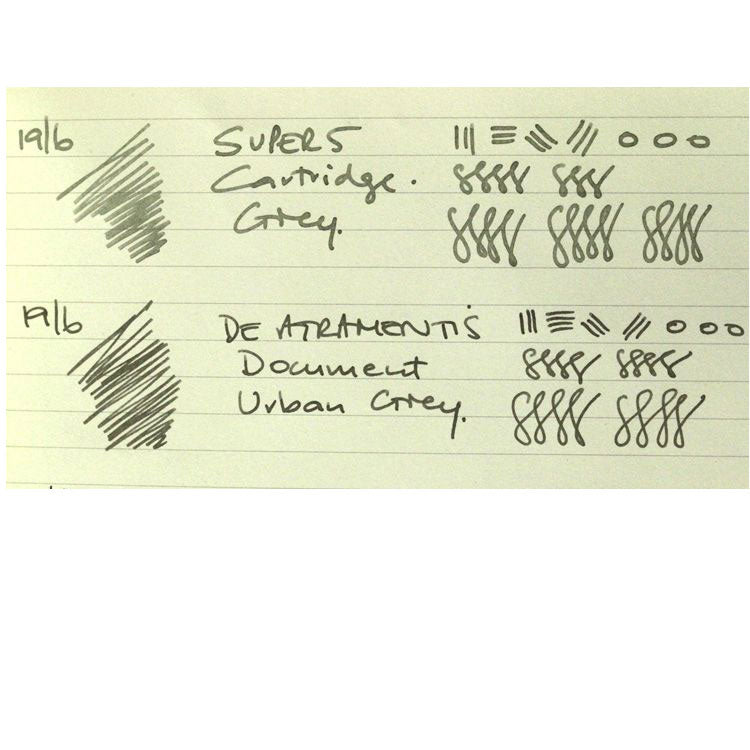 19/6 SUPER5
Cartridge.
Grey.
19/6 DE ATRAMENTIS
Document
Urban Grey.